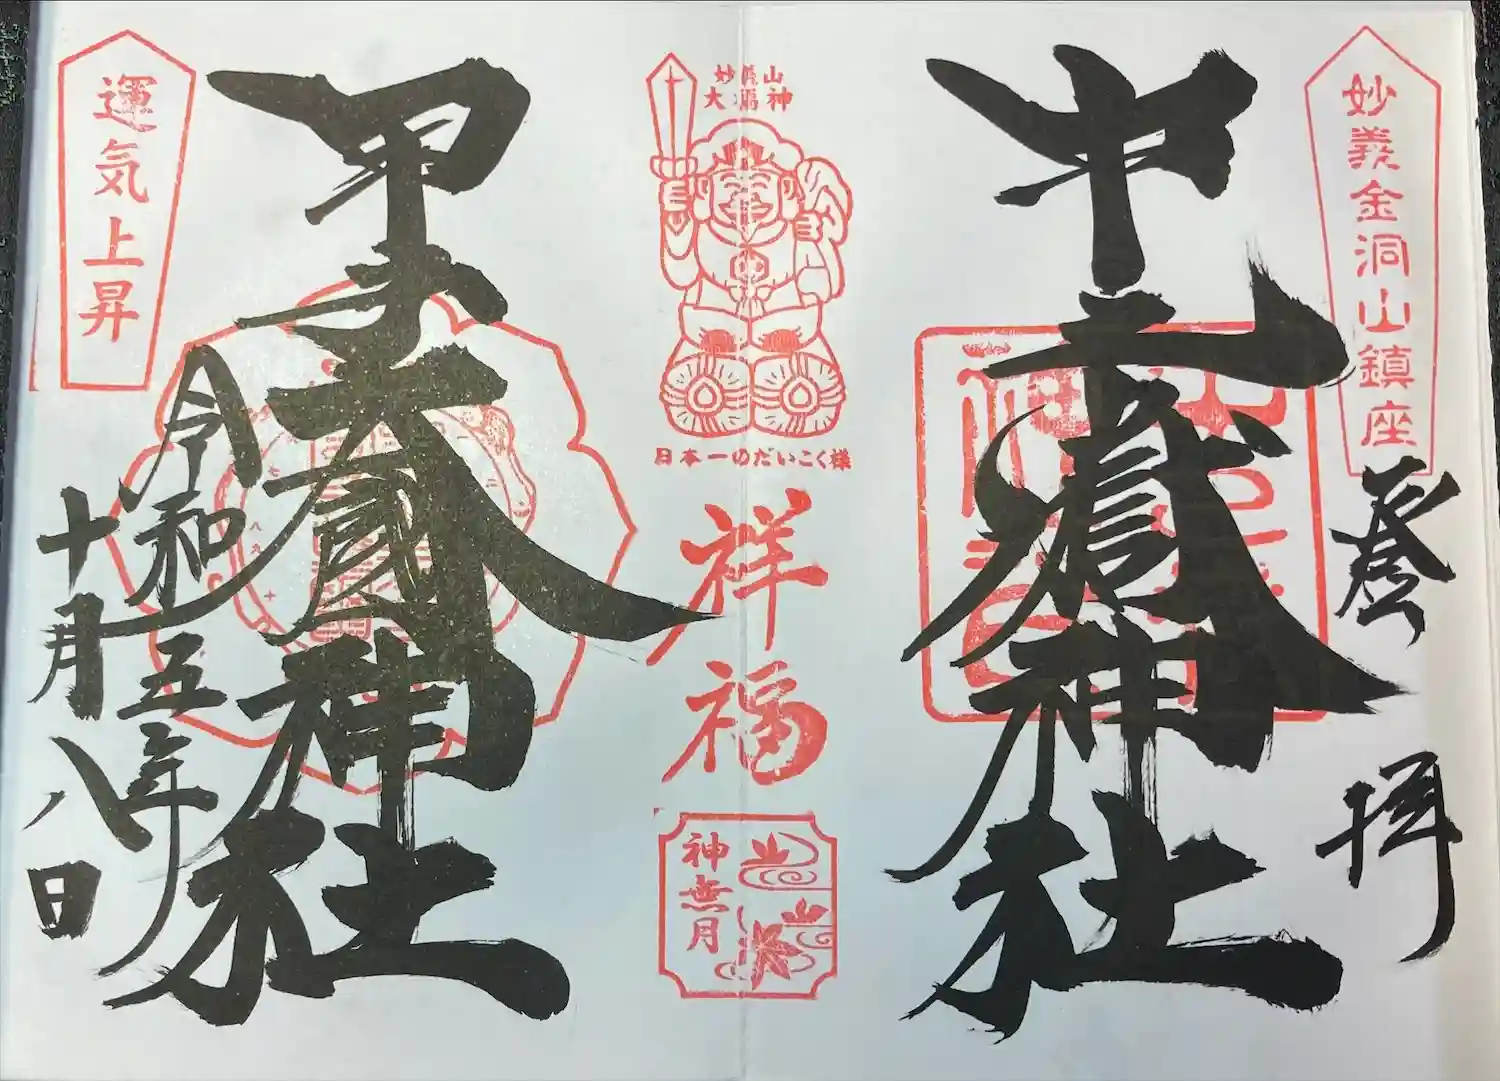 妙義金洞山鎮座
登拝
中之嶽神社
妙義山
大福神
日本一のだいこく様
祥福
神無月
甲子大國神社
運気上昇
令和五年
十月八日